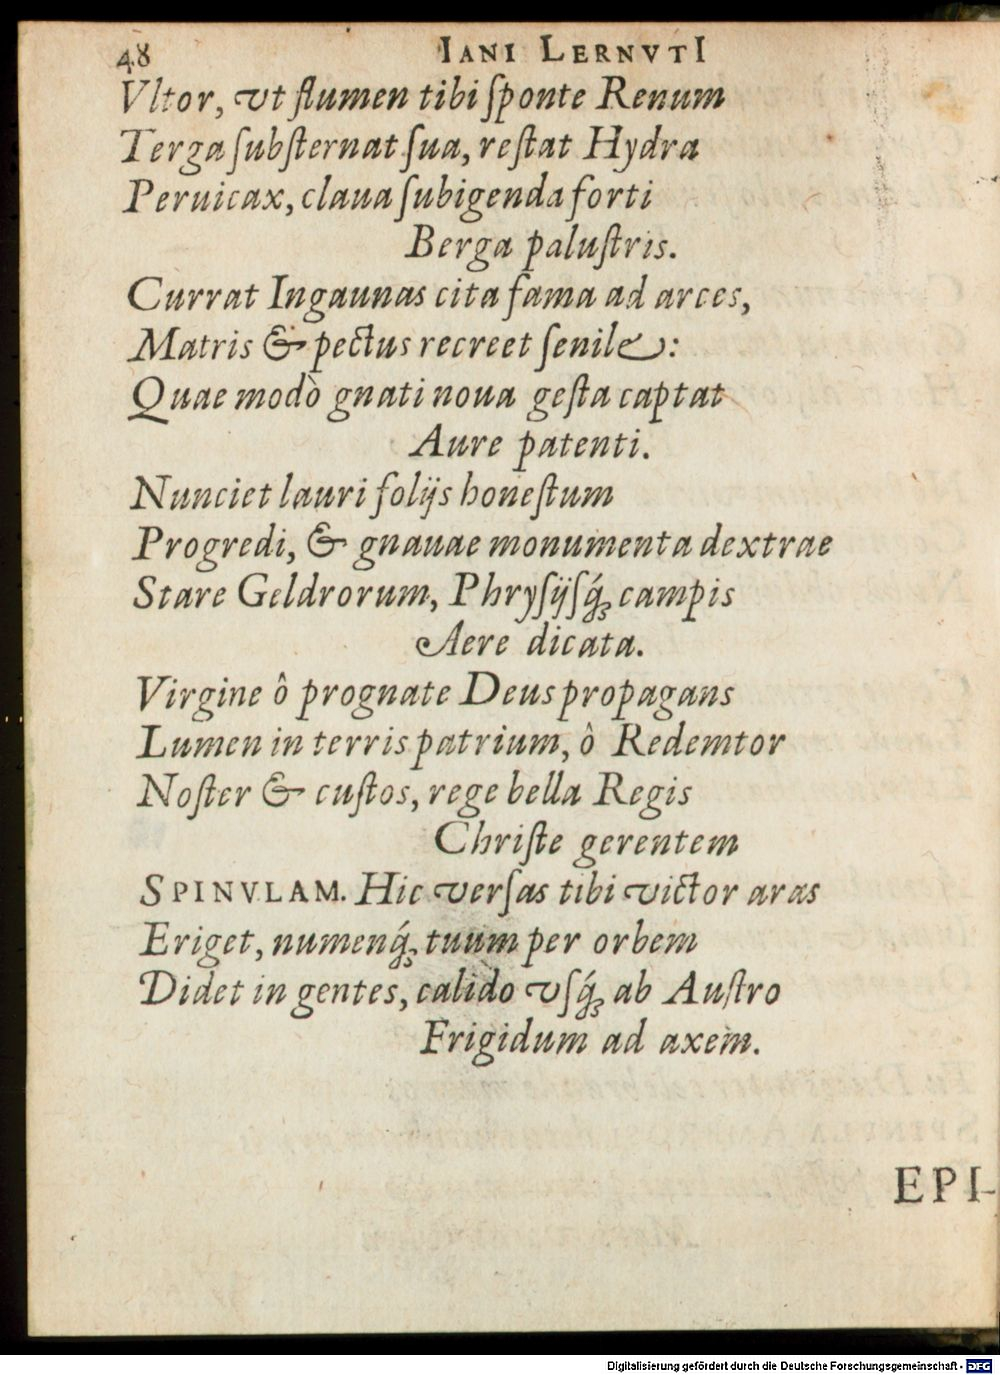 48 IANI LERNVTI
Vltor, vt flumen tibi ſponte Renum
Terga ſubſternat ſua, reſtat Hydra
Peruicax, claua ſubigenda forti
Berga paluſtris.
Currat Ingaunas cita fama ad arces,
Matris & pectus recreet ſenile:
Quae modò gnati noua geſta captat
Aure patenti.
Nunciet lauri folijs honeſtum
Progredi, & gnauae monumenta dextrae
Stare Geldrorum, Phryſijſq́; campis
Aere dicata.
Virgine ô prognate Deus propagans
Lumen in terris patrium, ô Redemtor
Noſter & cuſtos, rege bella Regis
Chriſte gerentem
SPINVLAM. Hic verſas tibi victor aras
Eriget, numenq́; tuum per orbem
Didet in gentes, calido vſq́; ab Auſtro
Frigidum ad axem.
EPI-
Digitalisierung gefördert durch die Deutsche Forschungsgemeinschaft - DFG